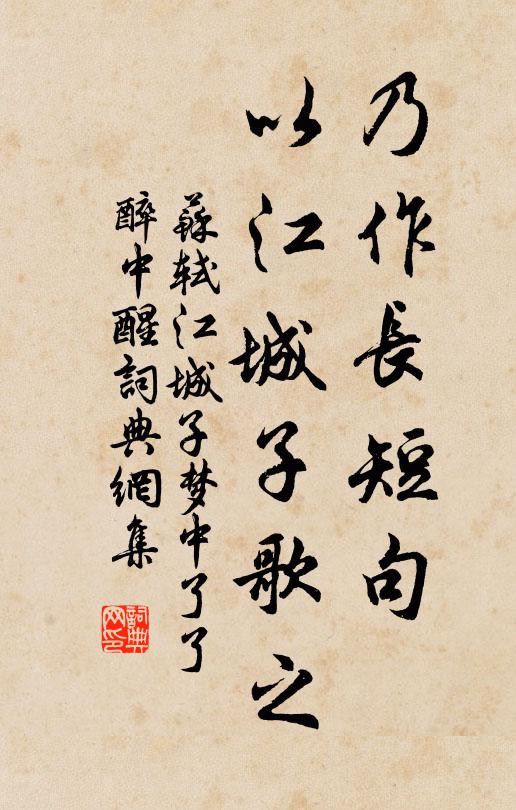 乃作長短句
以江城子歌之
蘇軾江城子梦中了了
醉中醒詞典網集
詞典
网印